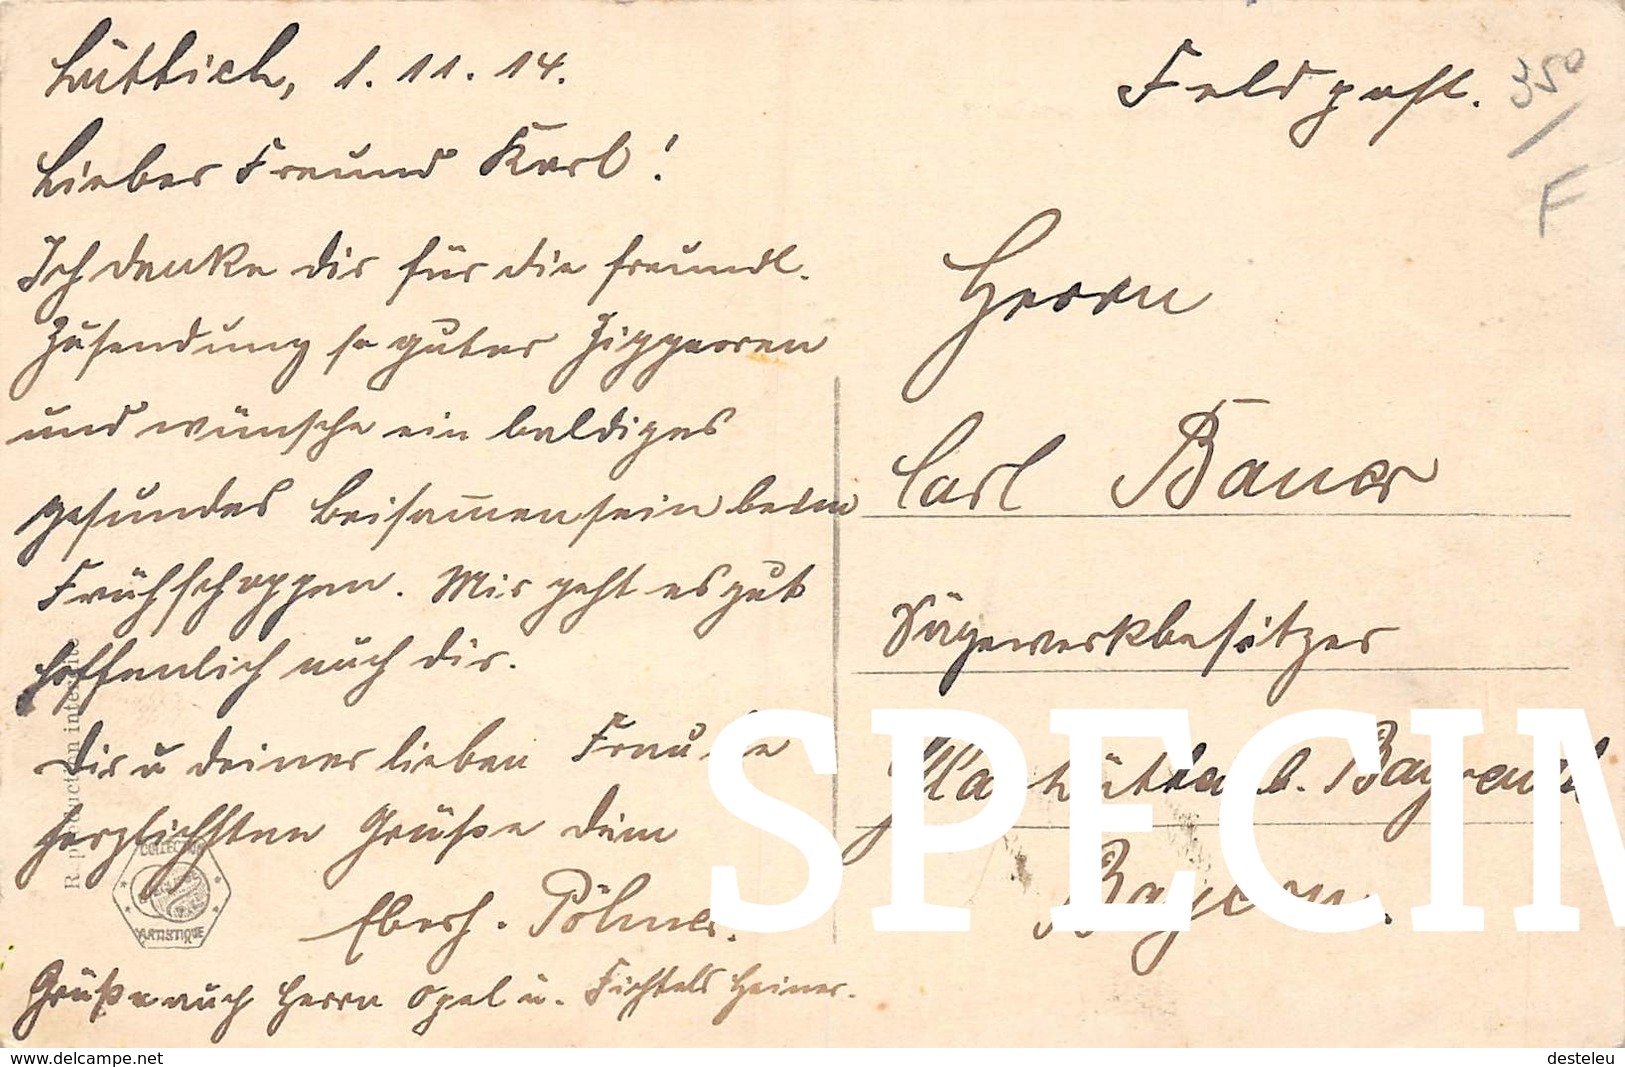 Lüttich, 1. 11. 14.
Lieber Freund Karl!
Ich danke dir für die freundl.
Zusendung so guter Ziggarren
und wünsche ein baldiges
gesundes Beisam̅ensein beim
Frühschoppen. Mir geht es gut
hoffenlich auch dir.
Dir u deiner lieben Frau die
herzlichsten Grüße dein
Eberh. Pölmer.
Grüße auch Herrn Opel u. Fichtels Heiner.
Feldpost.
350
F
Herrn
Carl Bauer
Sägewerkbesitzer
b. Bayreuth
Bayern.
COLLECTION
ARTISTIQUE
SPECIM
www.delcampe.net
desteleu